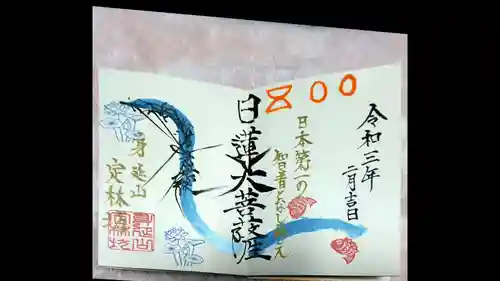 800
令和三年
二月吉日
日本第一の
智者となし給え
日蓮大菩薩
身延山
定林坊